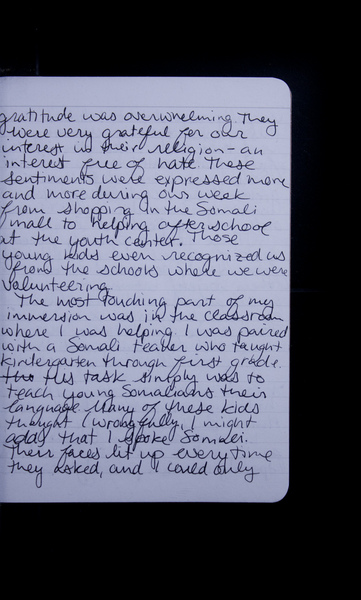 gratitude was overwhelming. They
were very grateful for our
interest in their religion - an
interest free of hate. These
sentiments were expressed more
and more during our weak
from shopping in the Somali
mall to helping afterschool
at the youth center. Those
young kids even recognized us
from the schools where we were
volunteering.
The most touching part of my
immersion was in the classroom
where I was helping. I was paired
with a Somali teacher who taught
kindergarten through first grade.
His task simply was to
teach young Somalians their
language. Many of these kids
thought (wrongfully, I might
add) that I spoke Somali.
Their faces lit up every time
they asked, and I could only